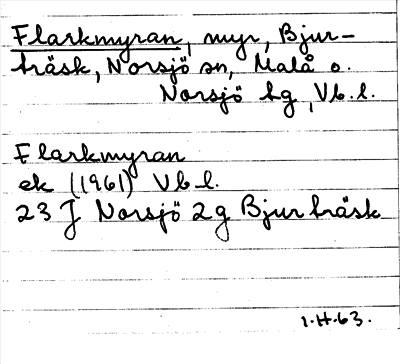 Flarkmyran, myr, Bjur-
träsk, Norsjö sn, Malå o.
Norsjö tg, Vb.l.
Flarkmyran
ek (1961) Vb l.
23 J Norsjö 2g Bjurträsk
1.H.63.